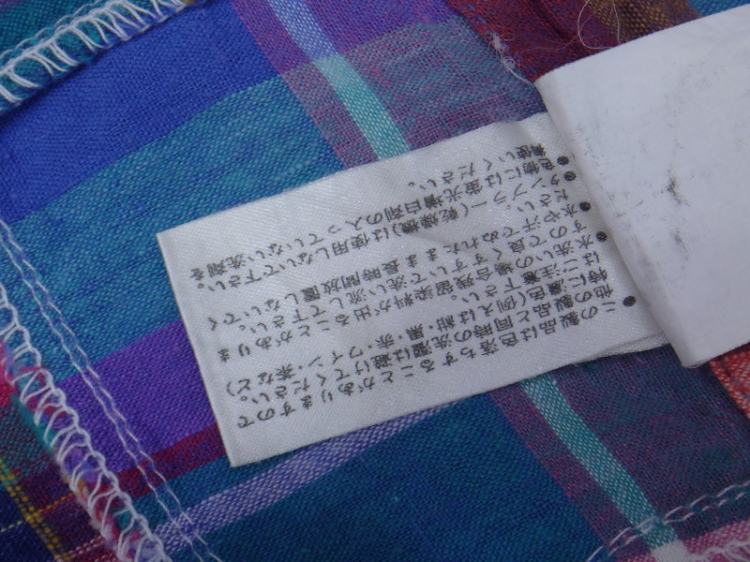 ●この製品は色落ちすることがありますので
他の製品と同時の洗濯は避けてください。
特に濃色(例えば紺・黒・赤・ワイン・茶など)
はご注意下さい。
●水洗いの場合残留染料が出ることがありま
すので良くすすいで洗い流して下さい。
●水や汗でぬれたまま長時間放置しないでく
ださい。
●タンブラー(乾燥機)は使用しないで下さい。
●色物には蛍光増白剤の入っていない洗剤を
御使いください。